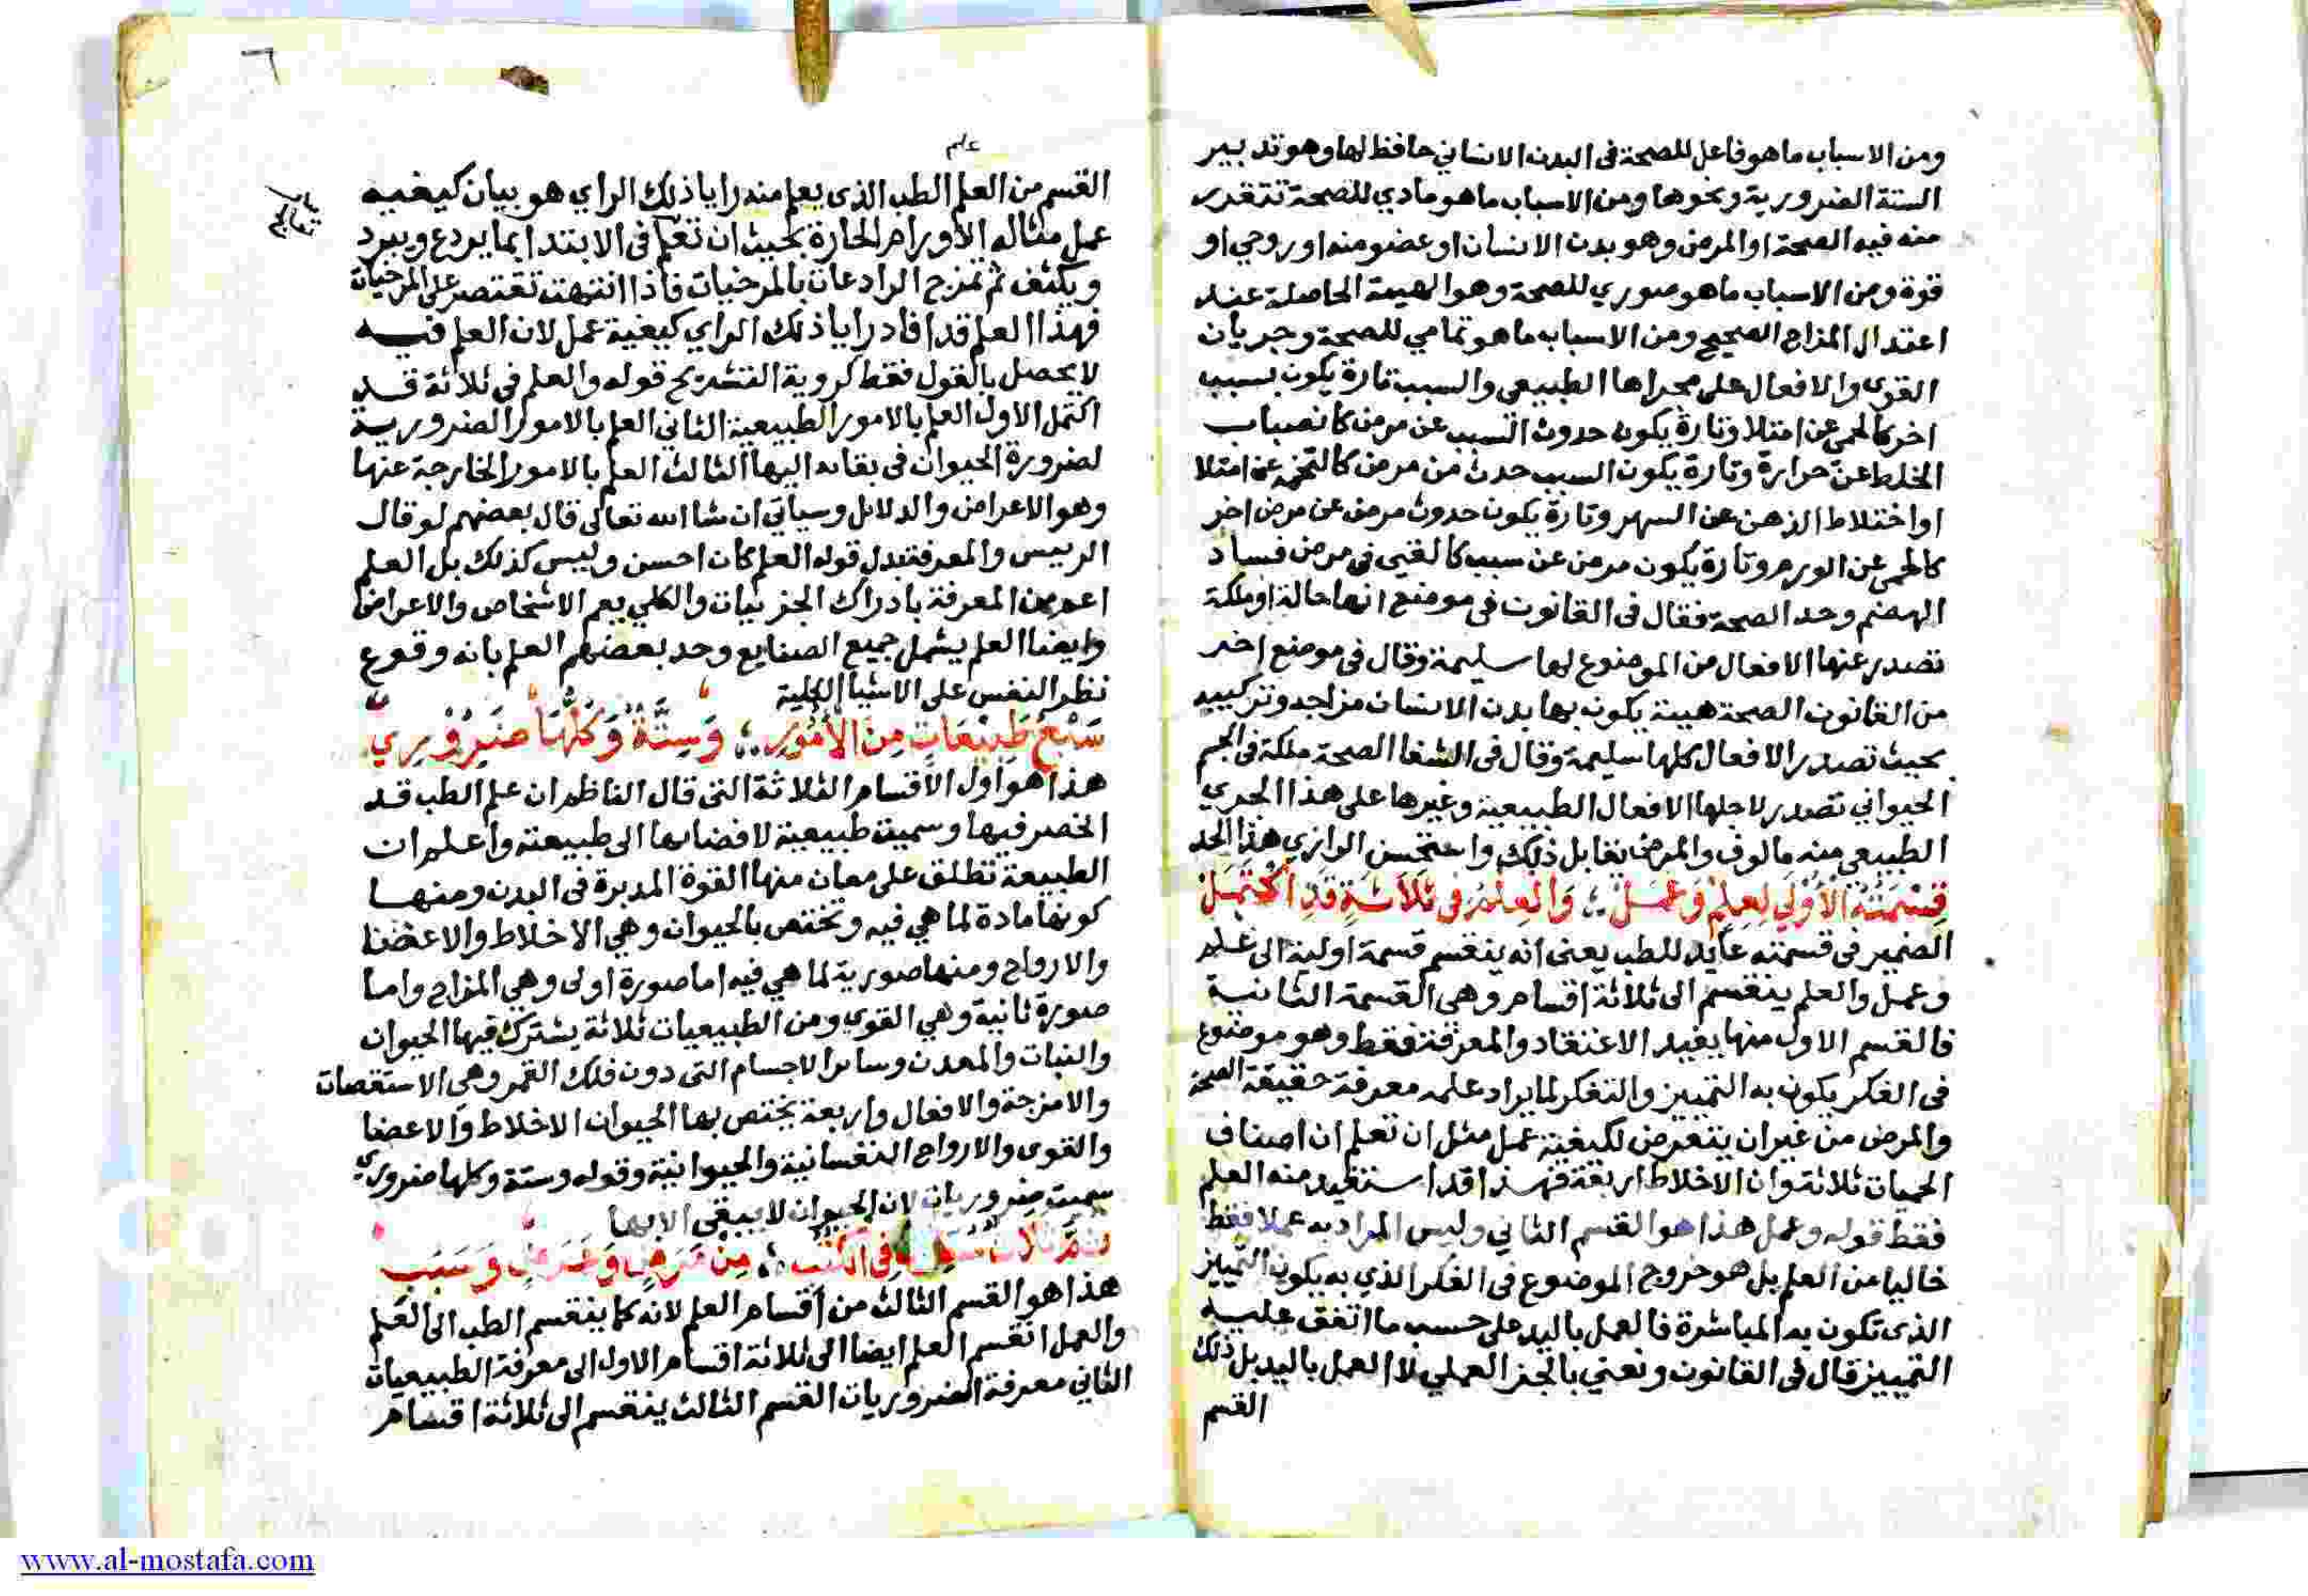 ومن الاسباب ما هو فاعل للصحة فى البدن الانساني حافظ لها وهو تدبير
الستة الضرورية ونحوها ومن الاسباب ما هو مادي للصحة تتقدر
منه فيه الصحة او المرض وهو بدن الانسان او عضو منه او روحي او
قوة ومن الاسباب ما هو صوري للصحة وهو الهيئة الحاصلة عند
اعتدال المزاج الصحيح ومن الاسباب ما هو تمامي للصحة وجريان
القوى والافعال على مجراها الطبيعى والسبب تارة يكون بسبب
اخر كالحمى عن امتلا وتارة يكون حدوث السبب عن مرض كانصباب
الخلط عن حرارة وتارة يكون السبب حدث من مرض كالتخمة عن امتلا
او اختلاط الذهن عن السهر وتارة يكون حدوث مرض عن مرض اخر
كالحمى عن الورم وتارة يكون مرض عن سبب كالقي فى مرض فساد
الهضم وحد الصحة فقال فى القانون فى موضع انها حالة او ملكة
تصدر عنها الافعال من الموضوع لها سليمة وقال فى موضع اخر
من القانون الصحة هيئة يكون بها بدن الانسان مزاجه وتركيبه
بحيث تصدر الافعال كلها سليمة وقال فى الشفا الصحة ملكة فى الجسم
الحيواني تصدر لاجلها الافعال الطبيعية وغيرها على هذا المجرى
الطبيعى منه مالوف والمرض يقابل ذلك واستحسن الرازي هذا الحد
قِسْمَتُهُ الْأُوْلَى لِعِلْمٍ وَعَمَلْ ؛ وَالْعِلْمُ فى ثَلَاثَةٍ قَدِ اكْتَمَلْ
الضمير فى قسمته عايد للطب يعنى انه ينقسم قسمة اولية الى علم
وعمل والعلم ينقسم الى ثلاثة اقسام وهى القسمة الثانية
فالقسم الاول منها يفيد الاعتقاد والمعرفة فقط وهو موضوع
فى الفكر يكون به التمييز والتفكر لما يراد علمه معرفة حقيقة الصحة
والمرض من غير ان يتعرض لكيفية عمل مثل ان تعلم ان اصناف
الحميات ثلاثة وان الاخلاط اربعة فهذا قد استفيد منه العلم
فقط قوله وعمل هذا هو القسم الثاني وليس المراد به عملا فقط
خاليا عن العلم بل هو خروج الموضوع فى الفكر الذي به يكون التمييز
الذى تكون به المباشرة فالعمل باليد على حسب ما اتفق عليه
التمييز قال فى القانون ونعني بالجز العملي لا العمل باليد بل ذلك
القسم
٦
علم
القسم من العلم الطب الذى يعلم منه رايا ذلك الراي هو بيان كيفية
عمل مثاله الاورام الحارة بحيث ان تعلم فى الابتدا بما يردع ويبرد
ويكثف ثم تمزج الرادعات بالمرخيات فاذا انتهت تقتصر على المرخيات
فهذا العلم قد افاد رايا ذلك الراي كيفية عمل لان العلم فيه
لا يحصل بالقول فقط كروية التشريح قوله والعلم فى ثلاثة قد
اكتمل الاول العلم بالامور الطبيعية الثاني العلم بالامور الضرورية
لضرورة الحيوان فى بقائه اليها الثالث العلم بالامور الخارجة عنها
وهو الاعراض والدلايل وسياتي ان شا الله تعالى قال بعضهم لو قال
الرييس والمعرفة بدل قوله العلم كان احسن وليس كذلك بل العلم
اعم من المعرفة بادراك الجزئيات والكلي يعم الاشخاص والاعراض
وايضا العلم يشمل جميع الصنايع وحد بعضهم العلم بانه وقوع
نظر النفس على الاشيا الكلية
سَبْعُ طَبِيْعَاتٍ مِنَ الْأُمُوْرِ ؛ وَسِتَّةٌ وَكُلُّهَا ضَرُوْرِيْ
هذا هو اول الاقسام الثلاثة التى قال الناظم ان علم الطب قد
انحصر فيها وسميت طبيعية لافضائها الى طبيعته واعلم ان
الطبيعة تطلق على معان منها القوة المدبرة فى البدن ومنها
كونها مادة لما هي فيه وتختص بالحيوان وهي الاخلاط والاعضا
والارواح ومنها صورية لما هي فيه اما صورة اولى وهي المزاج واما
صورة ثانية وهي القوى ومن الطبيعيات ثلاثة يشترك فيها الحيوان
والنبات والمعدن وسائر الاجسام التى دون فلك القمر وهى الاستقصات
والامزجة والافعال واربعة يختص بها الحيوان الاخلاط والاعضا
والقوى والارواح النفسانية والحيوانية وقوله وستة وكلها ضروري
سميت ضروريات لان الحيوان لا يبقى الا بها
ثُمَّ ثَلَاثٌ فِى الْكُتُبْ ؛ مِنْ مَرَضٍ وَعَرَضٍ وَسَبَبْ
هذا هو القسم الثالث من اقسام العلم لانه كما ينقسم الطب الى العلم
والعمل انقسم العلم ايضا الى ثلاثة اقسام الاول الى معرفة الطبيعيات
الثاني معرفة الضروريات القسم الثالث ينقسم الى ثلاثة اقسام
www.al-mostafa.com